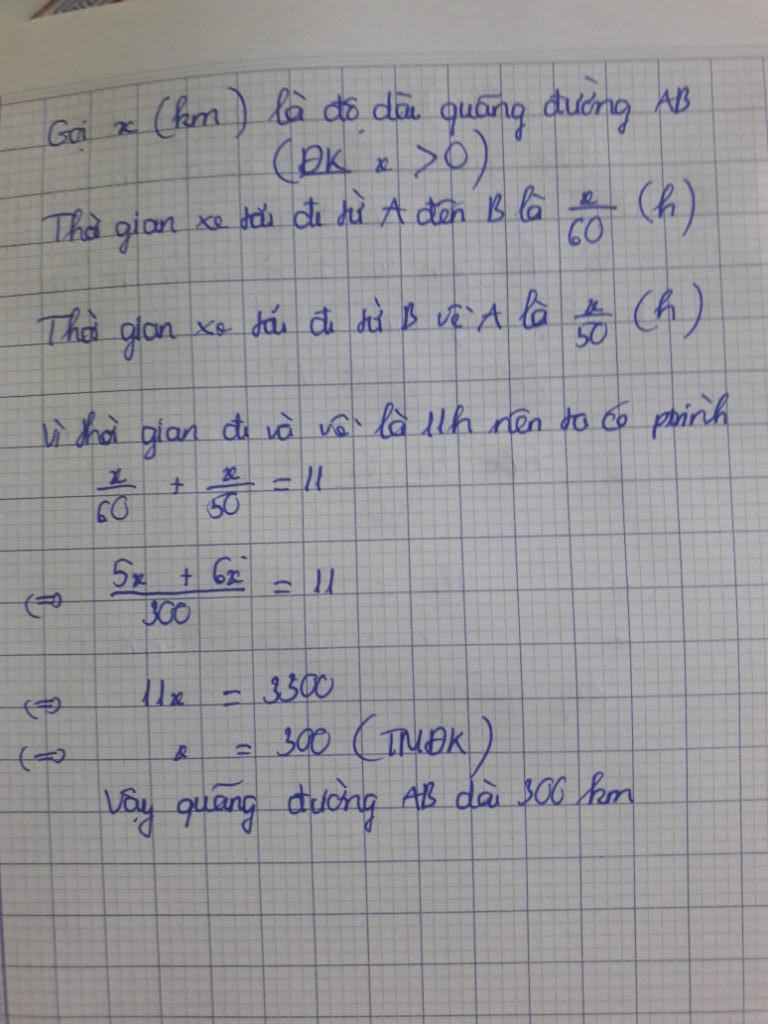 Gọi x (km) là độ dài quãng đường AB
(ĐK x > 0)
Thời gian xe tải đi từ A đến B là x/60 (h)
Thời gian xe tải đi từ B về A là x/50 (h)
Vì thời gian đi và về là 11h nên ta có
x/60 + x/50 = 11
⇔ (5x + 6x)/300 = 11
⇔ 11x = 3300
⇔ x = 300 (TMĐK)
Vậy quãng đường AB dài 300 km